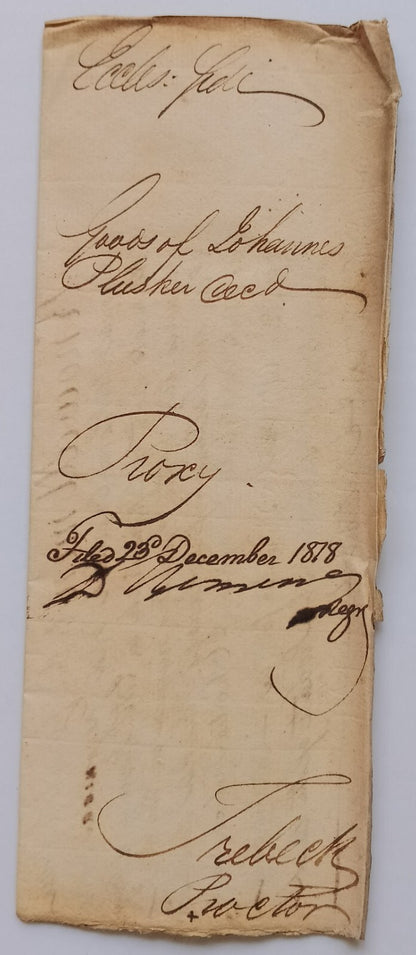 Eccles: Side
Goods of Johannes
Plusker decd.
Proxy.
Filed 23d December 1818
Regr
Trebeck
Proctor